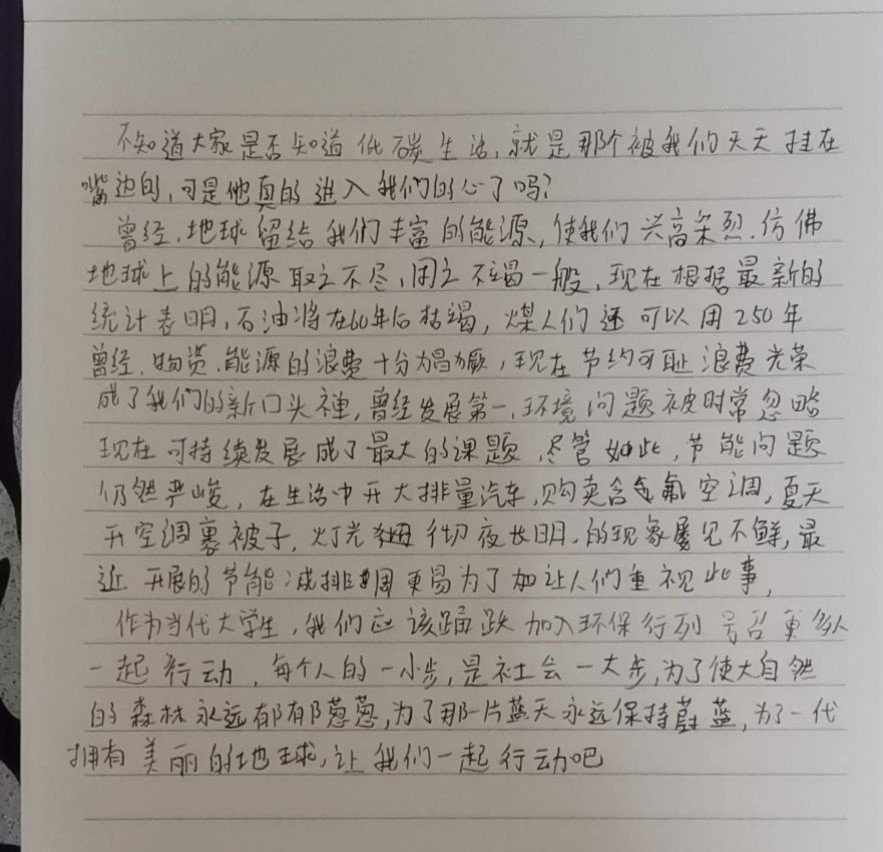 不知道大家是否知道低碳生活,就是那个被我们天天挂在
嘴边的,可是他真的进入我们的心了吗?
曾经,地球留给我们丰富的能源,使我们兴高采烈.仿佛
地球上的能源取之不尽,用之不竭一般,现在根据最新的
统计表明,石油将在60年后枯竭,煤人们还可以用250年
曾经,物资.能源的浪费十分为昌厥,现在节约可耻浪费光荣
成了我们的新口头禅,曾经发展第一,环境问题被时常忽略
现在可持续发展成了最大的课题,尽管如此,节能问题
仍然严峻,在生活中开大排量汽车,购卖含氟空调,夏天
开空调裹被子,灯光彻夜长明,的现象屡见不鲜,最
近开展的节能减排周更易为了加让人们重视此事,
作为当代大学生,我们应该踊跃加入环保行列号召更多人
一起行动,每个人的一小步,是社会一大步,为了使大自然
的森林永远郁郁葱葱,为了那一片蓝天永远保持蔚蓝,为了一代
拥有美丽的地球,让我们一起行动吧